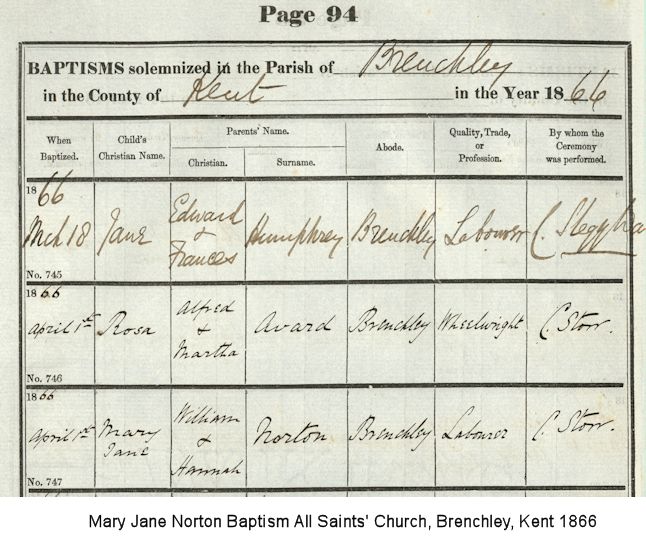 Page 94
BAPTISMS solemnized in the Parish of Brenchley
in the County of Kent in the Year 1866
When Baptized. Child's Christian Name. Parents' Name. Abode. Quality, Trade, or Profession. By whom the Ceremony was performed.
Christian. Surname.
1866
Mch 18 Jane Edward & Frances Humphrey Brenchley Labourer C.
No. 745
1866
April 1st Rosa Alfred & Martha Avard Brenchley Wheelwright C. Storr.
No. 746
1866
April 1st Mary Jane William & Hannah Norton Brenchley Labourer C. Storr.
No. 747
Mary Jane Norton Baptism All Saints' Church, Brenchley, Kent 1866